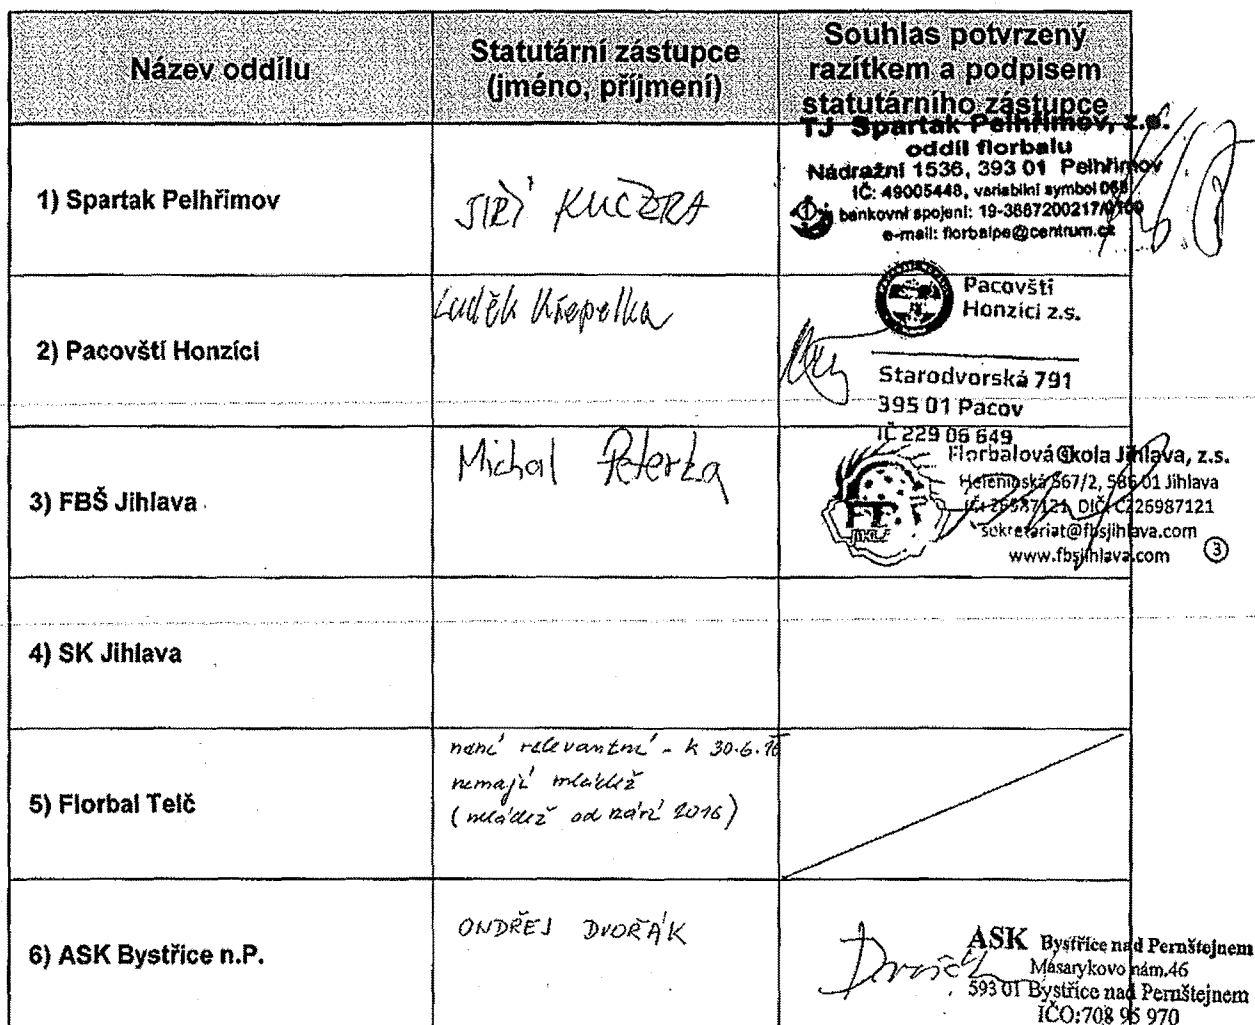 Název oddílu
Statutární zástupce
(jméno, příjmení)
Souhlas potvrzený
razítkem a podpisem
statutárního zástupce
1) Spartak Pelhřimov
JIŘÍ KUČERA
TJ Spartak Pelhřimov, z.s.
oddíl florbalu
Nádražní 1536, 393 01 Pelhřimov
IČ: 49005448, variabilní symbol 068
bankovní spojení: 19-3887200217/0100
e-mail: florbalpe@centrum.cz
2) Pacovští Honzíci
Luděk Křepelka
Pacovští
Honzíci z.s.
Starodvorská 791
395 01 Pacov
IČ 229 06 649
3) FBŠ Jihlava
Michal Peterka
Florbalová škola Jihlava, z.s.
567/2, 586 01 Jihlava
DIČ: CZ26987121
sekretariat@fbsjihlava.com
www.fbsjihlava.com
3
4) SK Jihlava
5) Florbal Telč
není relevantní - k 30.6.16
nemají mládež
(mládež od září 2016)
6) ASK Bystřice n.P.
ONDŘEJ DVOŘÁK
Dvořák
ASK Bystřice nad Pernštejnem
Masarykovo nám.46
593 01 Bystřice nad Pernštejnem
IČO:708 95 970